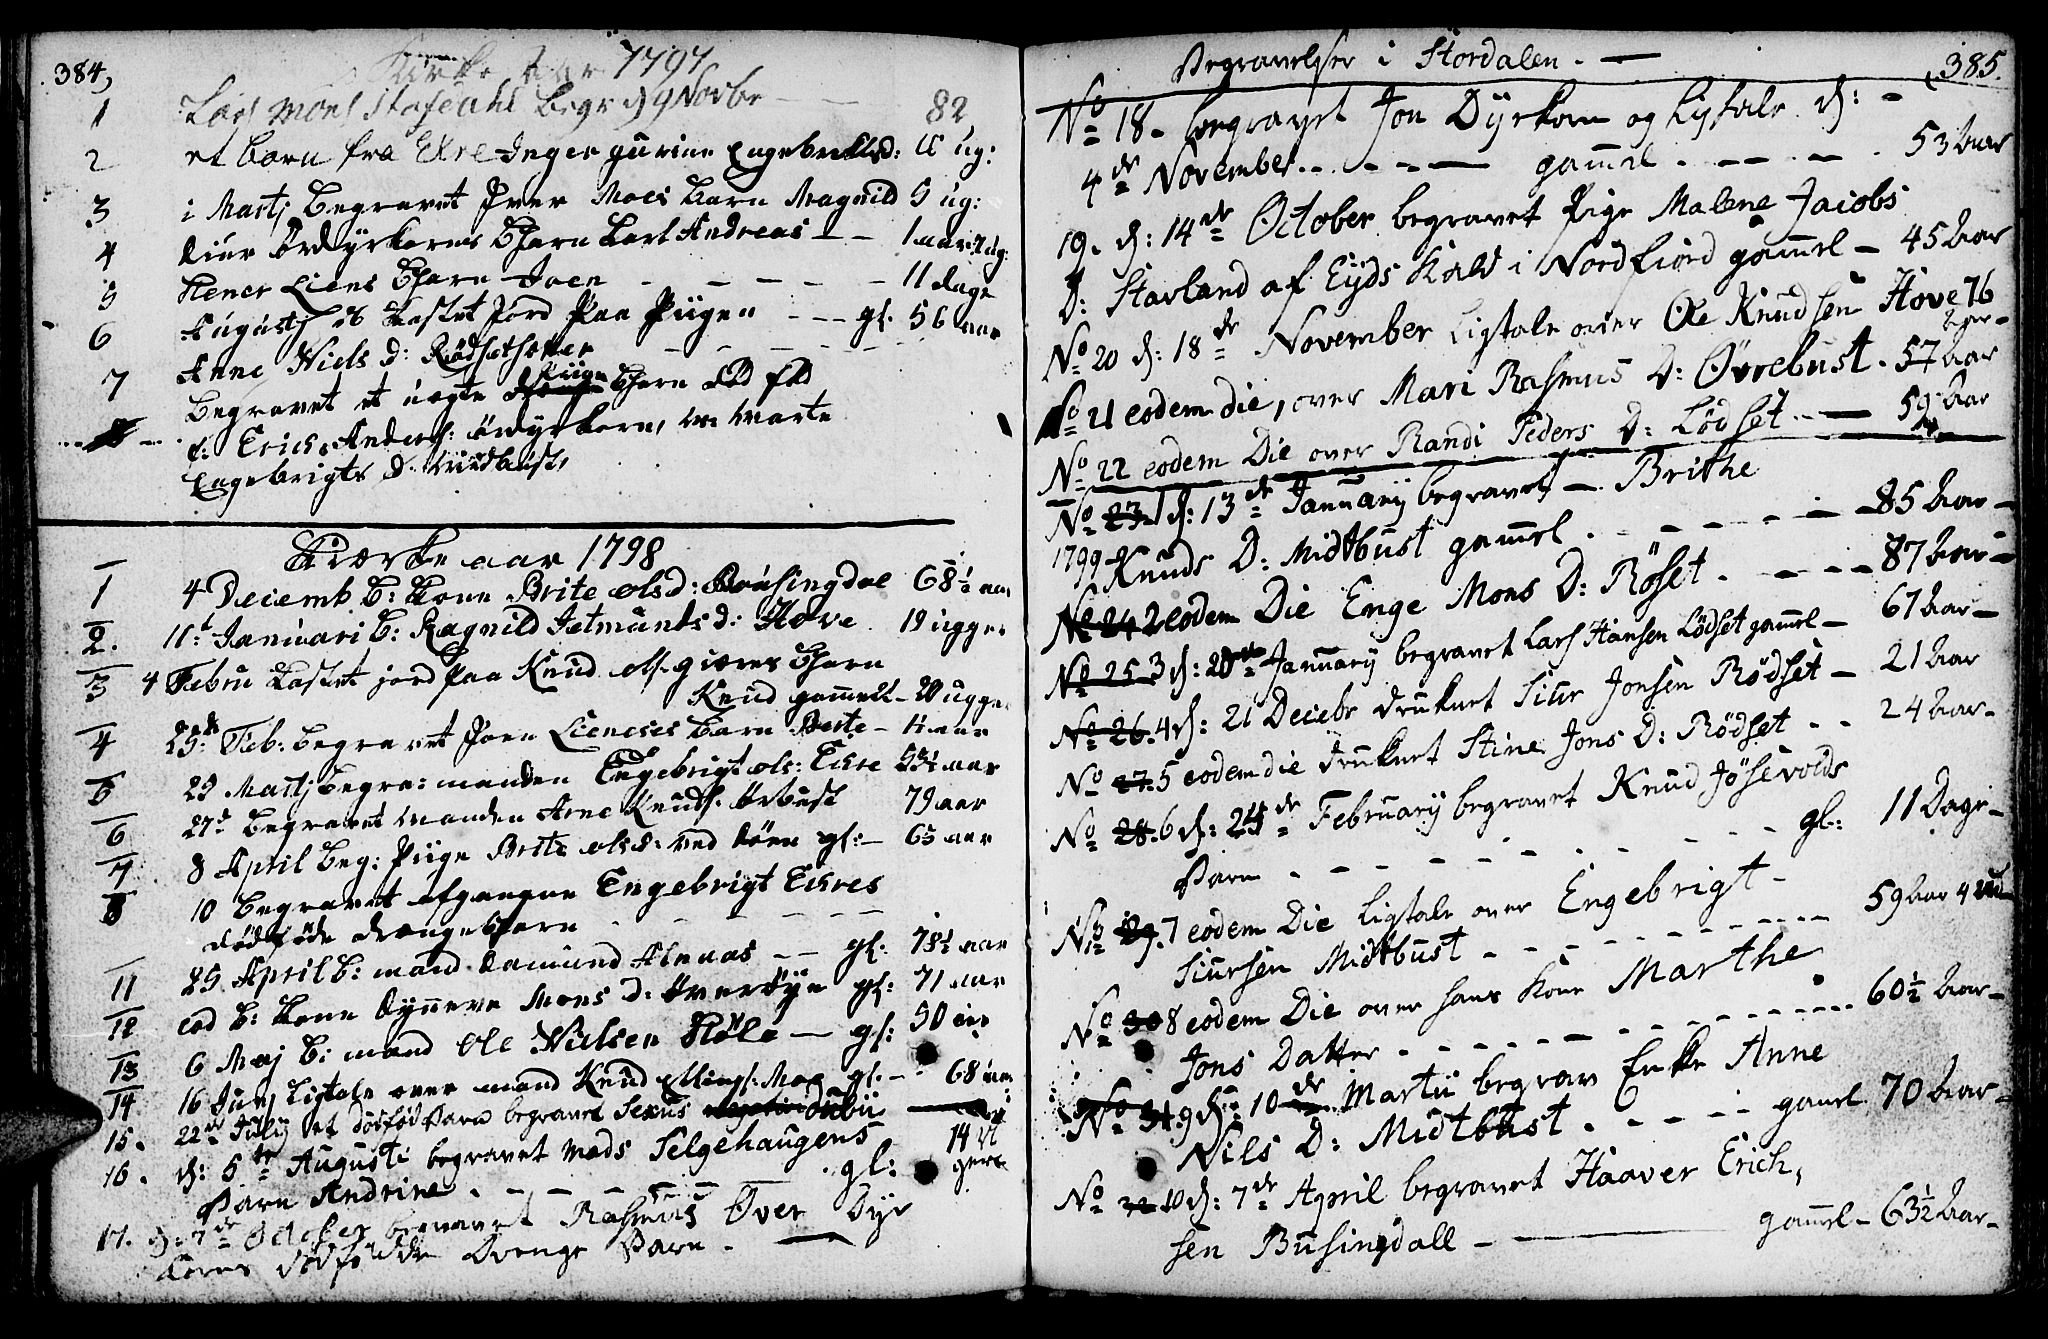 384,
Kirke Aar 1797
1 Lars Mons Stafdahl Begr d 9 Novbr - - 82
2 et barn fra Ekre Inger gurine Engebretsd: 15 ug:
3 i Martj Begravet Iver Moes barn Magnild 5 ug:
4 Siur Ørdyrkorns Barn Karl Andreas - - 1 aar 7 ug:
5 Liens Barn Joen - - - - - 11 dage
6 Augustj Kastet Jord Paa Piigen - - - gl. 56 aar
Anne Niels d: Rødset
7 Begravet et uegte Piige Barn død fød
f: Erich Anders: ørdyrkorn, m: Marte
Engebrigts d: Midbust,
Kirke aar 1798
1 4 Decemb. b: Kone Brite olsd: Busingdal 68½ aar
2. 11t Januari b: Ragnild Jetmunds d: Hove 19 ugger
3 4 Febru Kastet jord paa Knud ols. Barn
Knud gammel - 20 ugger
4 25de Feb: begravet Joen Lieneses Barn Berte - aar
5 25 Martj Begra: manden Engebrigt ols: Ekre 53½ aar
6 27d begravet Manden Arne Knuds: Ørbust 79 aar
7 8 April Beg: Piige Brite olsd: ved Søen gl: - 65 aar
8 10 begravet afgangne Engebrigt Ekres
dødføde drengebarn - - - - -
11 25 April b: mand Aamund - - gl: 78½ aar
12 eod b: Kone Synneve Mons d: Øverøye gl: 71 aar
13 6 Maj b: mand Ole Nielsen Høle - gl: 50 aar
14 16 Junj Ligtale over mand Knud Ellings: Moe gl: - - 68 aar
15. 22de Julij et dødfød Barn begravet Sexus dubii
16. d: 5te Augusti begravet Mads Selgehaugens 14
Barn Andrine. - - - - - gl:
17. d: 7de October begravet Rasmus Over Dyr
korns dødfødde Drenge Barn. -
Begravelser i Stordalen. - 385.
No 18. begravet Jon Dyrkorn og Ligtale d: -
4de November. - - - - gammel. - - - . 53 Aar
19. d: 14de October begravet Pige Malene Jacobs
D: Starland af Eyds Kald i Nordfiord gammel - 45 Aar
No 20 d: 18de November Ligtale over Ole Knudsen Hove 76
Aar -
No 21 eodem die, over Mari Rasmus D: Øvrebust. 57 Aar
No 22 eodem Die over Randi Peders D: Lødset. - - 59 Aar
No 23. 1 d: 13de Januarij begravet - Brithe
1799 Knuds D: Midtbust gammel. - - - - - 85 Aar -
No 24 2 eodem Die Enge Mons D: Röset. - - - 87 Aar -
No 25 3 d: 20de Januarij begravet Lars Hansen Lödset gammel - 67 Aar -
No 26. 4 d: 21 Decebr druknet Siur Jonsen Rödset - 21 Aar
No 27. 5 eodem die druknet Stine Jons D: Rödset - - 24 Aar -
No 28. 6 d: 24de Februarij begravet Knud Jösevolds
Barn - - - - - - - - gl: 11 Dage -
No 29. 7 eodem Die Ligtale over Engebrigt -
Siursen Midtbust - - - - - - - 59 Aar 4
No 30 8 eodem Die over hans Kone Marthe
Jons Datter. - - - - - - - - 60½ Aar -
No 31. 9 d: 10de Martii begrav Enke Anne
Nils D: Midtbust. - - - - gamel 70 Aar -
No 32 10 d: 7de April begravet Haaver Erich,
sen Busingdall - gammel - 63½ Aar -